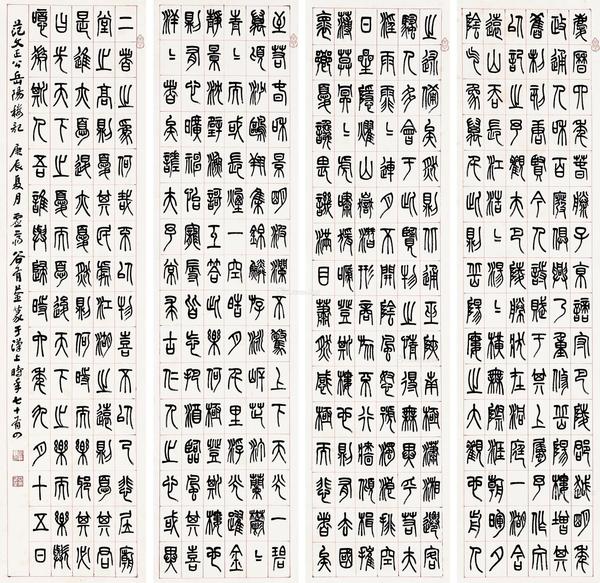 慶曆四年春滕子京謫守巴陵郡越明年
政通人和百廢俱興乃重修岳陽樓增其
舊制刻唐賢今人詩賦于其上屬予作文
以記之予觀夫巴陵勝狀在洞庭一湖含
遠山吞長江浩〻湯〻橫無際涯朝暉夕
陰氣象萬千此則岳陽樓之大觀也前人
之述備矣然則北通巫峽南極瀟湘遷客
騷人多會于此覽物之情得無異乎若夫
淫雨霏〻連月不開陰風怒號濁浪排空
日星隱耀山嶽潛形商旅不行檣傾楫摧
薄暮冥〻虎嘯猿啼登斯樓也則有去國
懷鄉憂讒畏譏滿目蕭然感極而悲者矣
至若春和景明波瀾不驚上下天光一碧
萬頃沙鷗翔集錦鱗游泳岸芷汀蘭鬱〻
青〻而或長煙一空皓月千里浮光躍金
靜影沉璧漁歌互答此樂何極登斯樓也
則有心曠神怡寵辱皆忘把酒臨風其喜
洋〻者矣嗟夫予嘗求古仁人之心或異
二者之爲何哉不以物喜不以己悲居廟
堂之高則憂其民處江湖之遠則憂其君
是進亦憂退亦憂然則何時而樂耶其必
曰先天下之憂而憂後天下之樂而樂歟
噫微斯人吾誰與歸時六年九月十五日
范文正公岳陽樓記 庚辰夏月 谷有荃篆于漢上時年七十有四